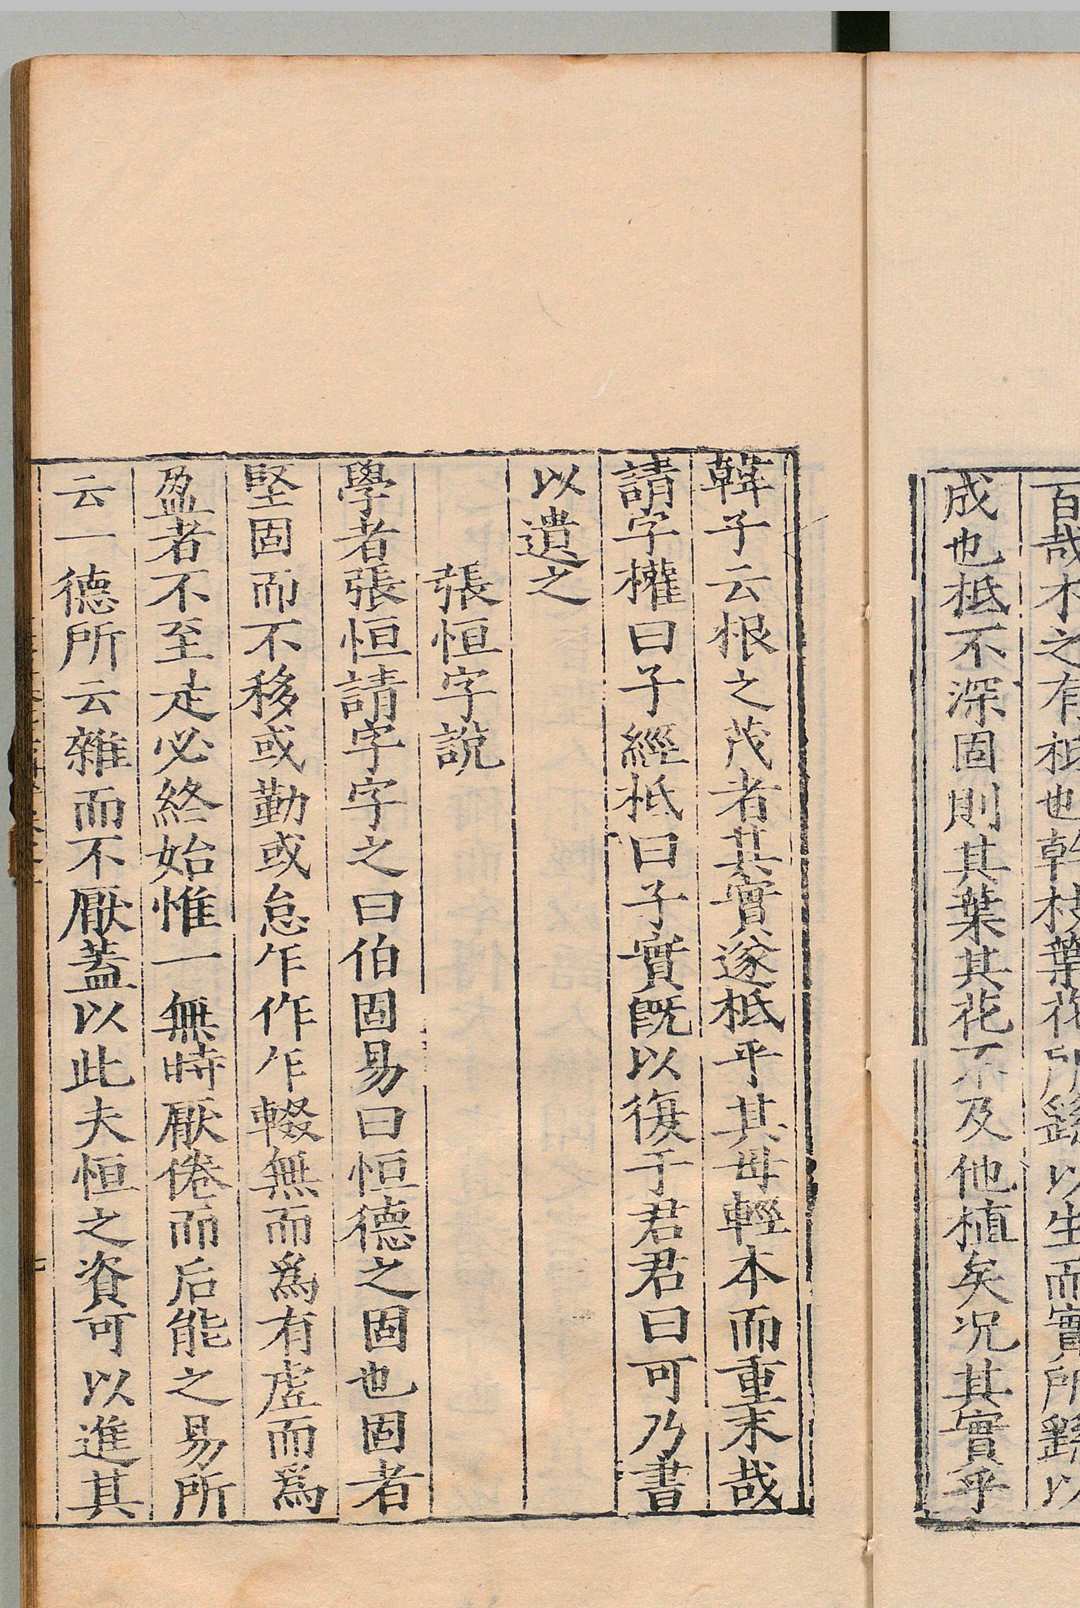 百哉木之有柢也幹枝葉花所繇以生而實所繇以
成也柢不深固則其葉其花不及他植矣况其實乎
韓子云根之茂者其實遂柢乎其毋輕本而重末哉
請字權曰子經柢曰子實旣以復于君君曰可乃書
以遺之
張恒字說
學者張恒請字字之曰伯固易曰恒德之固也固者
堅固而不移或勤或怠乍作乍輟無而爲有虛而爲
盈者不至走必終始惟一無時厭倦而后能之易所
云一德所云雜而不厭蓋以此夫恒之資可以進其